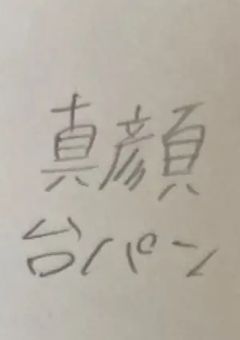 真顔
台パン